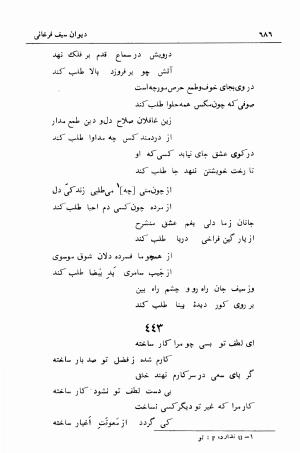 ۶۸۶
دیوان سیف فرغانی
درویش در سماع قدم بر فلک نهد
آتش چو بر فروزد بالا طلب کند
در وی بجای خوف وطمع حرص سورچه است
صوفی که چون مگس همه حلوا طلب کند
زین غافلان صلاح دل ودین طمع مدار
از دردمند کس چه مداوا طلب کند
در کوی عشق جای نیابد کسی که او
تا رخت خویشتن ننهد جا طلب کند
از چون منی [چه]۱ می طلبی زندگی دل
از مرده چون کسی دم احیا طلب کند
جانان ز ما دلی بغم عشق منشرح
از یار گین فراخی دریا طلب کند
از همچو ما فسرده دلان شوق موسوی
از جیب سامری ید بیضا طلب کند
وز سیف جان راه رو و چشم راه بین
بر روی کور دیدهٔ بینا طلب کند
۴۴۳
ای لطف تو بسی چو مرا کار ساخته
کارم شده ز فضل تو صد بار ساخته
گر پای سعی در سر کارم نهند خلق
بی دست لطف تو نشود کار ساخته
کار مرا که غیر تو دیگر کسی نساخت
کی گردد از معونت اغیار ساخته
۱- U ندارد، P : تو